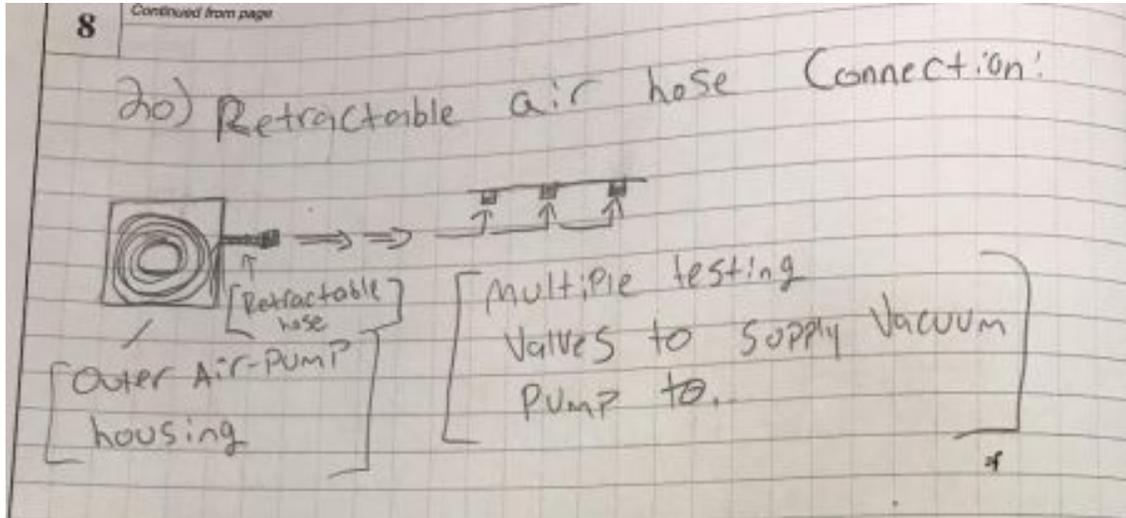 8
Continued from page
20) Retractable air hose Connection:
[Retractable
hose]
[Outer Air-Pump
housing]
[Multiple testing
Valves to supply Vacuum
Pump to.]